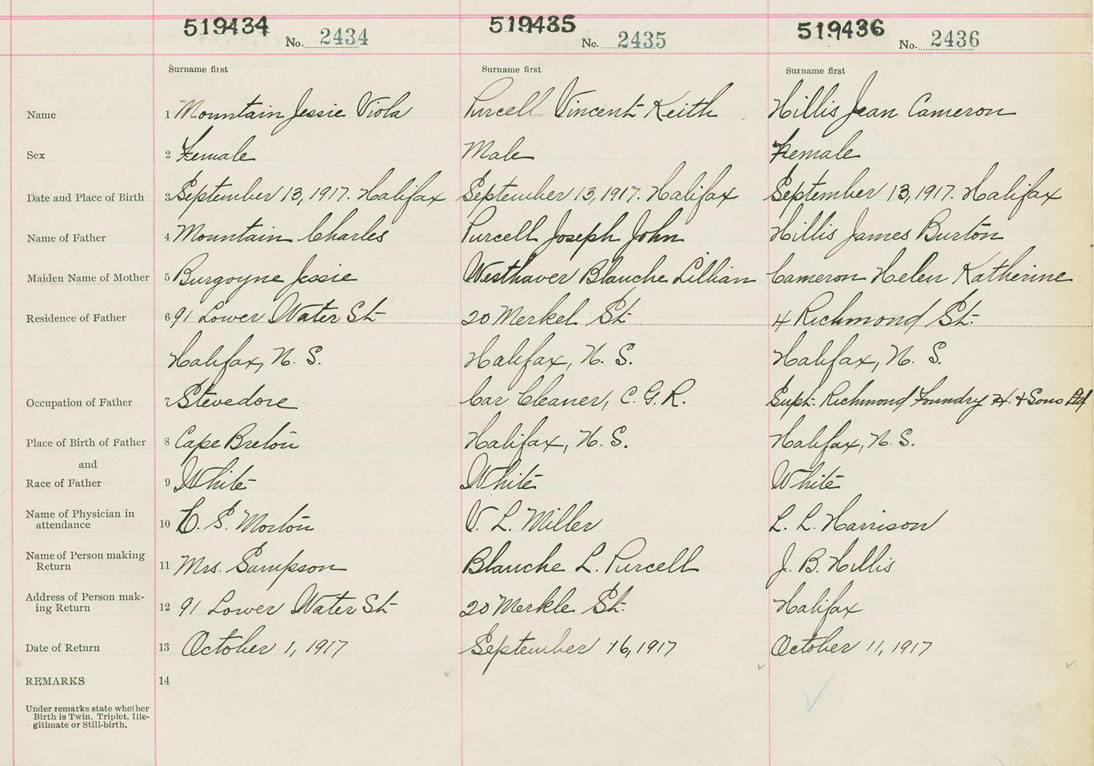 519434 No. 2434 519435 No. 2435 519436 No. 2436
Surname first Surname first Surname first
Name 1 Mountain Jessie Viola Purcell Vincent Keith Hillis Jean Cameron
Sex 2 Female Male Female
Date and Place of Birth 3 September 13, 1917. Halifax September 13, 1917. Halifax September 13, 1917. Halifax
Name of Father 4 Mountain Charles Purcell Joseph John Hillis James Burton
Maiden Name of Mother 5 Burgoyne Jessie Westhaver Blanche Lillian Cameron Helen Katherine
Residence of Father 6 91 Lower Water St. 20 Merkel St. 4 Richmond St.
Halifax, N. S. Halifax, N. S. Halifax, N. S.
Occupation of Father 7 Stevedore Car Cleaner, C. G. R. Supt. Richmond Foundry H. & Sons Ltd
Place of Birth of Father 8 Cape Breton Halifax, N. S. Halifax, N. S.
and
Race of Father 9 White White White
Name of Physician in
attendance 10 E. S. Morton V. L. Miller L. L. Harrison
Name of Person making
Return 11 Mrs. Sampson Blanche L. Purcell J. B. Hillis
Address of Person mak-
ing Return 12 91 Lower Water St. 20 Merkle St. Halifax
Date of Return 13 October 1, 1917 September 16, 1917 October 11, 1917
REMARKS 14
Under remarks state whether
Birth is Twin, Triplet, Ille-
gitimate or Still-birth.